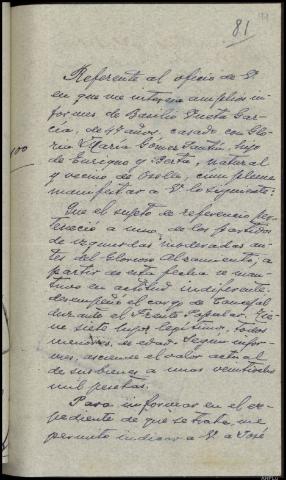 81
Referente al oficio de V
en que me interesa amplios in-
formes de Basilio Cueto Gar-
cia, de 49 años, casado con Glo-
ria Maria Gomez Santin, hijo
100
de Enrique y Berta, natural
y vecino de cumpleme
manifestar a V lo siguiente:
Que el sujeto de referencia per-
tenecio a uno, de los partidos
de izquierdas moderados an-
tes del Glorioso Alzamiento, a
partir de esta fecha se man-
tuvo en actitud indiferente.
desempeñó el cargo de Concejal
durante el Frente Popular. Tie-
ne siete hijos legitimos, todos
menores, de edad. Segun infor-
mes, asciende el valor actual
de sus bienes a unas veinticinco
mil pesetas.
Para informar en el ex-
pediente de que se trata, me
permito indicar a V a José